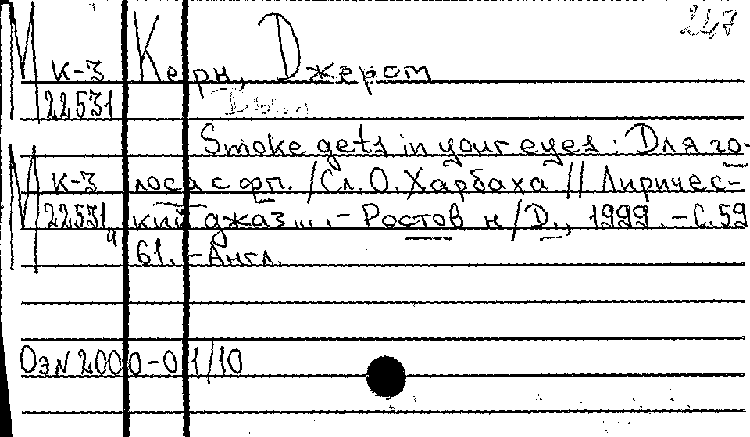 247
М к-3 Керн, Джером
22531 Дым
Smoke gets in your eyes : Для го-
М к-3 лоса с фп. / Сл. О. Харбаха // Лиричес-
22531 кий джаз... .- Ростов н/Д., 1999 .- С.59
61. - Англ.
ОэN 2000-01/10